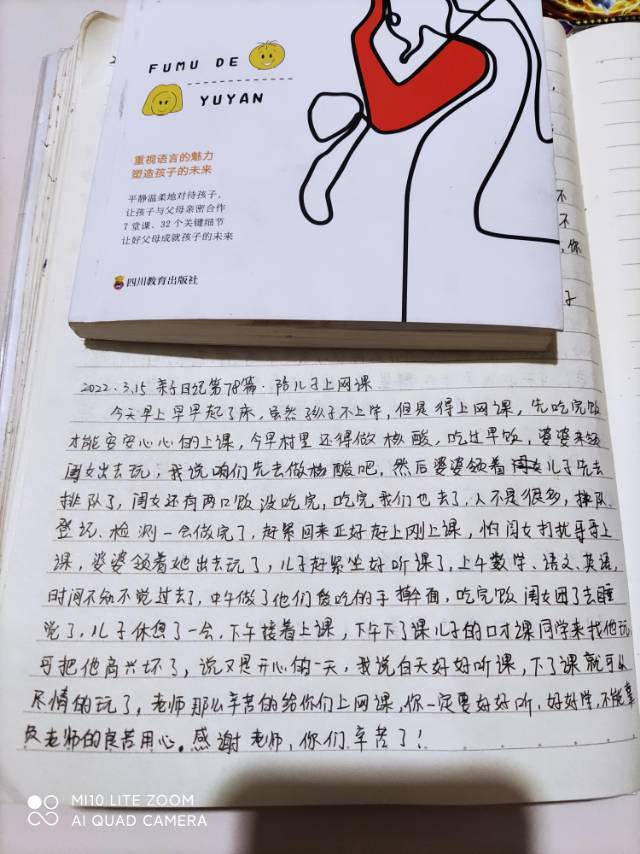 FUMU DE
YUYAN
重视语言的魅力
塑造孩子的未来
平静温柔地对待孩子,
让孩子与父母亲密合作
7堂课、32个关键细节
让好父母成就孩子的未来
四川教育出版社
不
不
,你
子
2022.3.15 亲子日记第78篇·陪儿子上网课
今天早上早早起了床,虽然孩子不上学,但是得上网课,先吃完饭
才能安安心心的上课,今早村里还得做核酸,吃过早饭,婆婆来领
闺女出去玩,我说咱们先去做核酸吧,然后婆婆领着儿子先去
排队了,闺女还有两口饭没吃完,吃完我们也去了,人不是很多,排队
登记、检测一会做完了,赶紧回来正好赶上刚上课,怕闺女打扰哥哥上
课,婆婆领着她出去玩了,儿子赶紧坐好听课了,上午数学、语文、英语,
时间不知不觉过去了,中午做了他们爱吃的手擀面,吃完饭闺女困了去睡
觉了,儿子休息了一会,下午接着上课,下午下了课儿子的口才课同学来找他玩
可把他高兴坏了,说又是开心的一天,我说白天好好听课,下了课就可以
尽情的玩了,老师那么辛苦的给你们上网课,你一定要好好听、好好学,不能辜
负老师的良苦用心。感谢老师,你们辛苦了!
MI 10 LITE ZOOM
AI QUAD CAMERA